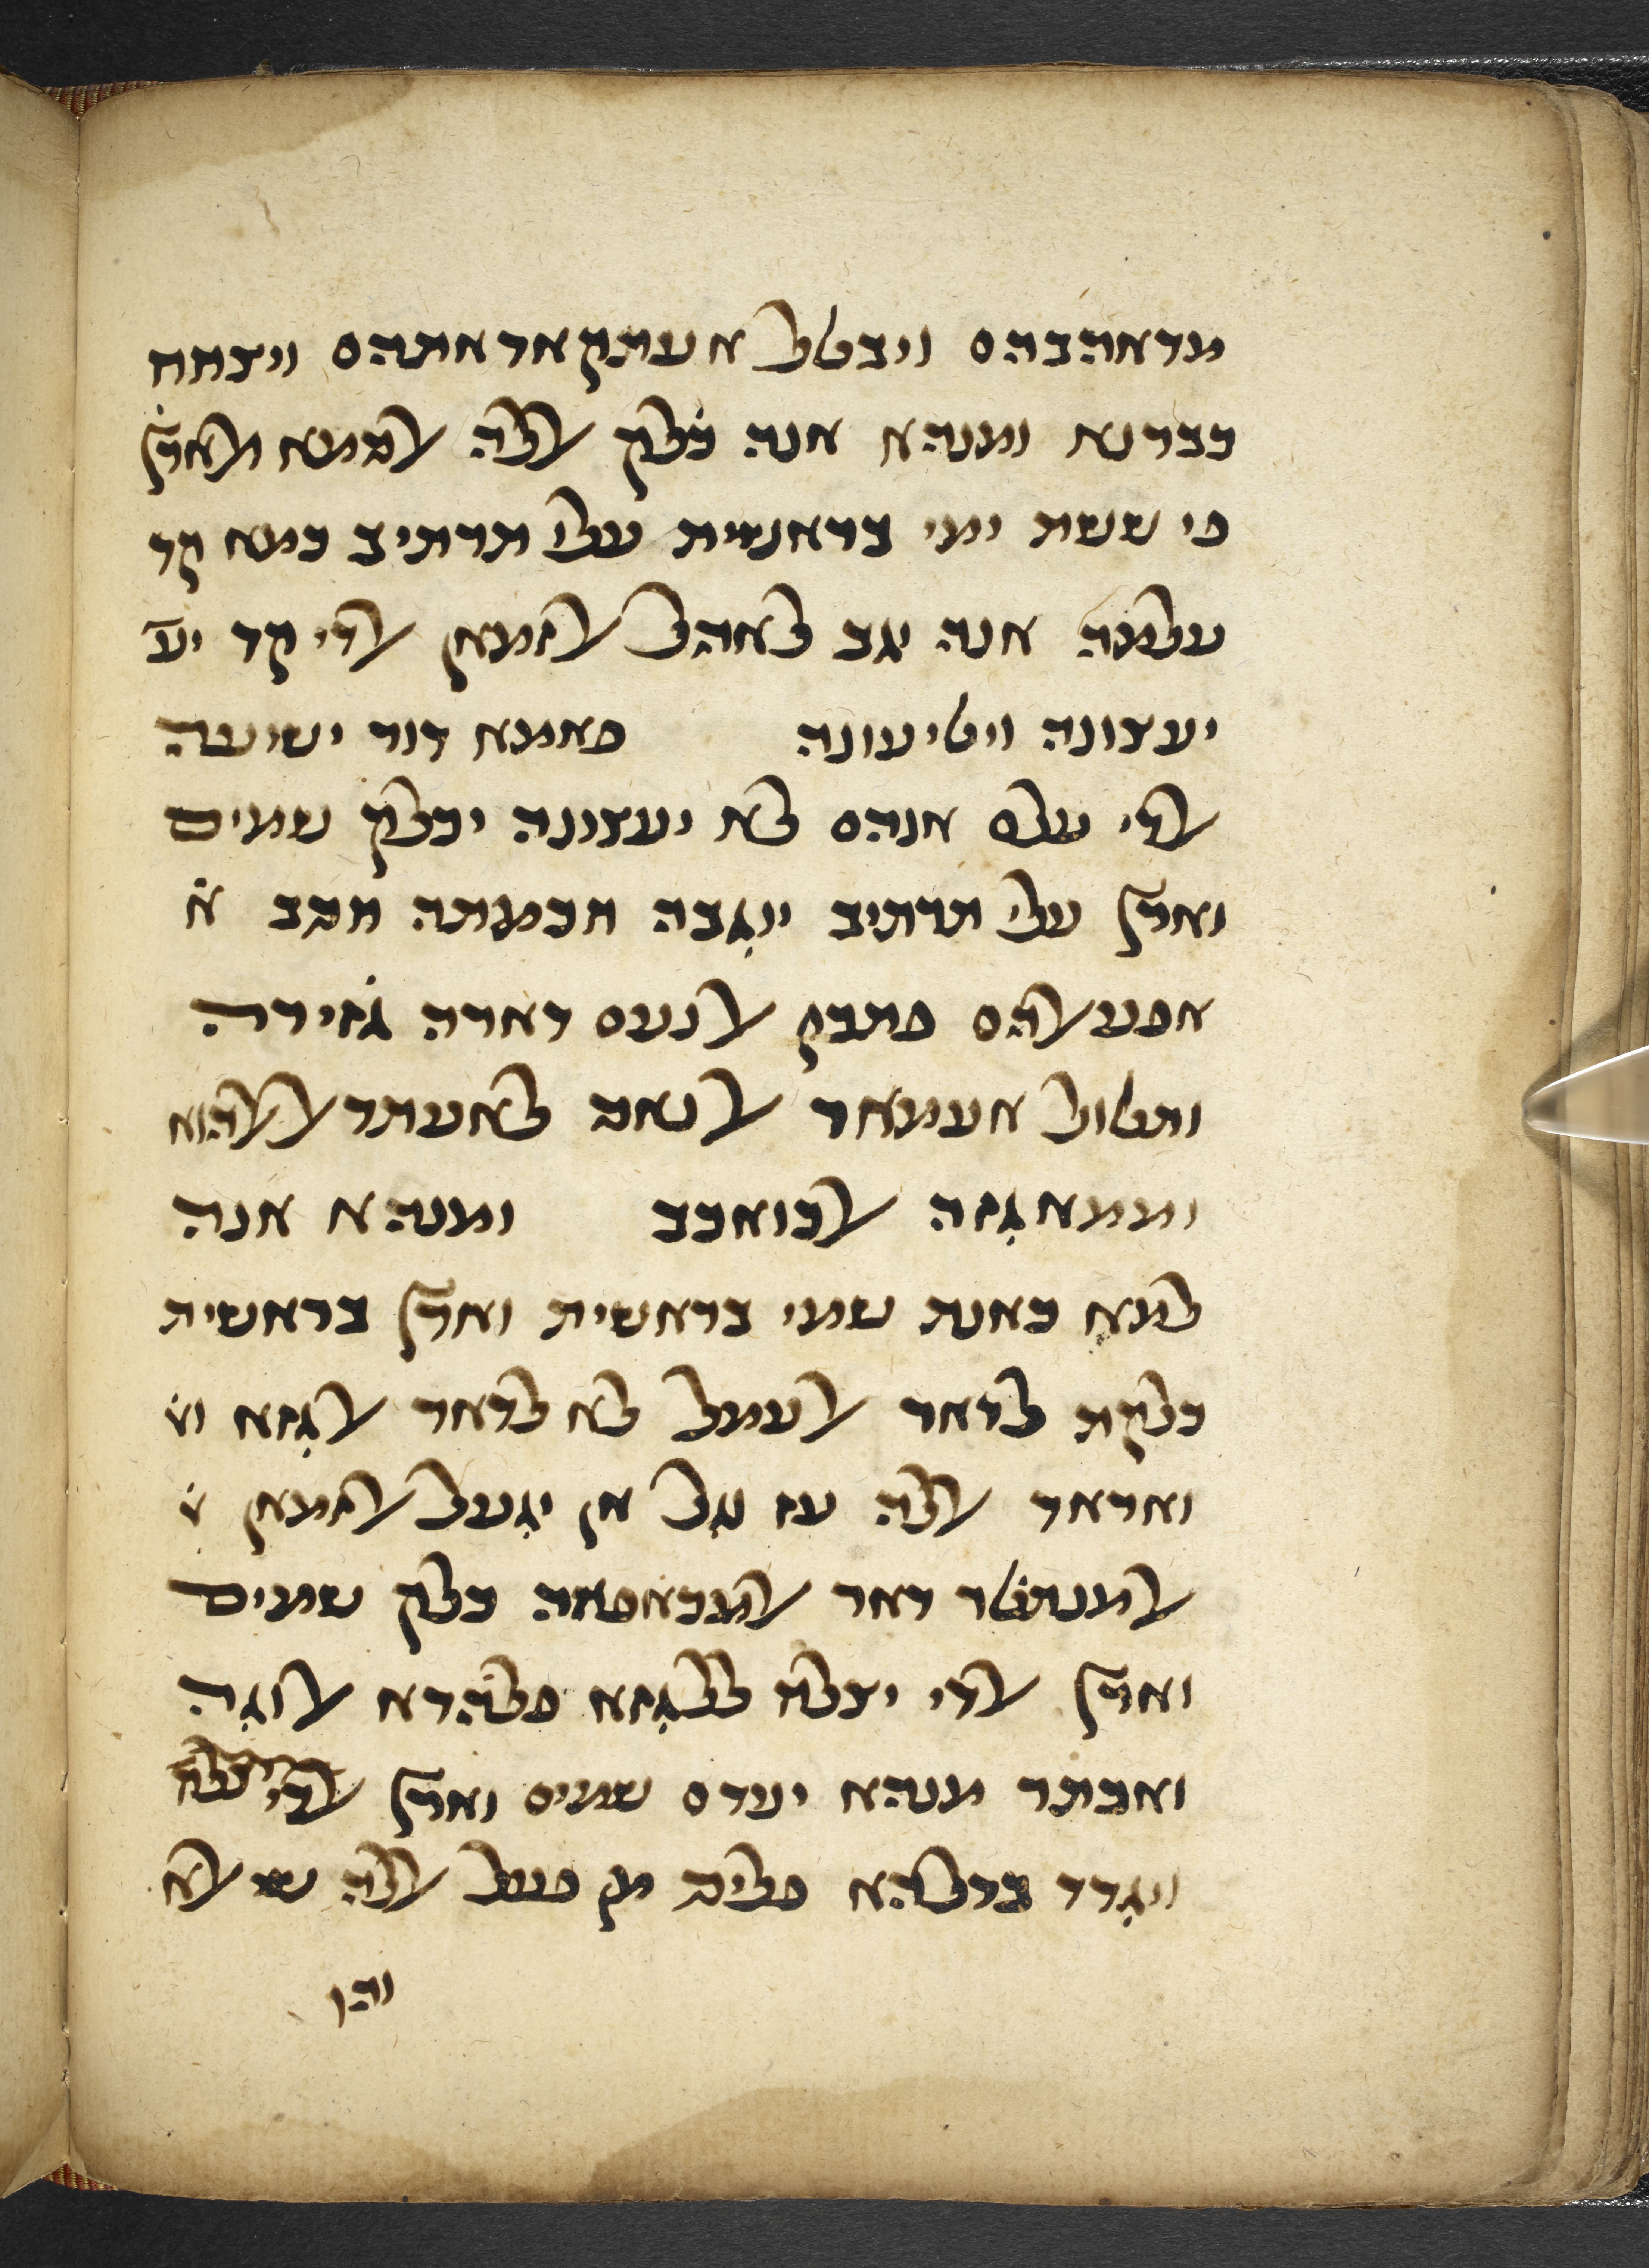 מדאהבהם ויבטל אעתקאדאתהם ויצחח
כברנא ומנהא אנה כ̇לק אללה אלסמא ואלארץ̇
פי ששת ימי בראשית עלי תרתיב כמא קד
עלמנה אנה יגב לאהל אלזמאן אלדי קד יע
יעצונה ויטיעונה פאמא דור ישועה
אלדי עלם אנהם לא יעצונה יכלק שמים
וארץ עלי תרתיב יוגבה חכמתה חסב א̇
אפעאלהם פתבק אלנעם דארה ג̇זירה
ותטול אעמאר אלנאס לאעתד אלאלהוא
וממאזגה אלכואכב ומנהא אנה
למא כאנת שמי בראשית וארץ בראשית
כלקת לדאר אלעמל לא לדאר אלגזא וא̇
ואראד אללה עז וגל אן יגעל אלזמאן א̇
אלמנתט̇ר דאר אלמכאפאה כלק שמים
וארץ אלדי יצלח ללגזא פלהדא אלוגה
ואכתר מנהא יעדם שמים וארץ אלדי
ויגדד בדלהא פליס מן פעל אללה שי אלא
והו